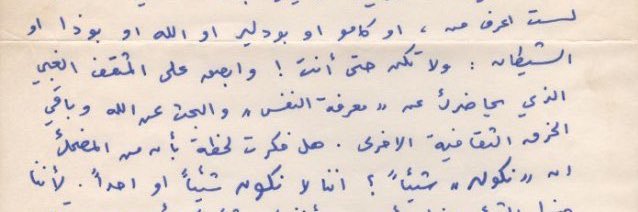 لست اعرف من ، او كامو او بودلير او الله او بوذا او
الشيطان : ولا تكن حتى أنت ! وابصق على المثقف الغبي
الذي يحاضرك عن «معرفة النفس» والبحث عن الله وباقي
الخرق الثقافية الاخرى . هل فكرت لحظة بأن من المضحك
ان «نكون» شيئاً ؟ اننا لا نكون شيئاً او احداً . لأننا